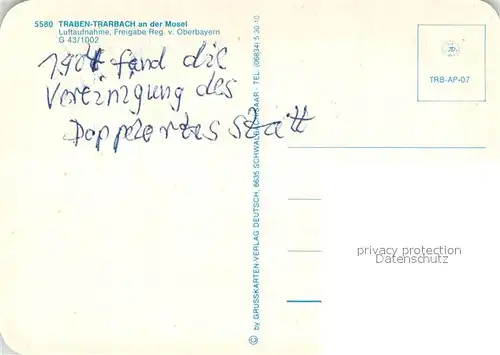 5580 TRABEN-TRARBACH an der Mosel
Luftaufnahme, Freigabe Reg. v. Oberbayern
G 43/1002
fand die
Vereinigung des
Doppelortes statt
© by GRUSSKARTEN-VERLAG DEUTSCH, 6635 SCHWALBACH/SAAR · TEL. (06834) 5 30 10
TRB-AP-07
privacy protection
Datenschutz